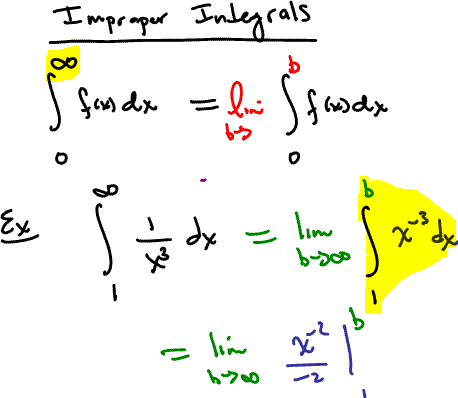 Improper Integrals
∫₀^∞ f(x) dx = lim_{b→} ∫₀^b f(x) dx
Ex ∫₁^∞ 1/x³ dx = lim_{b→∞} ∫₁^b x⁻³ dx
= lim_{b→∞} x⁻²/-2 |₁^b